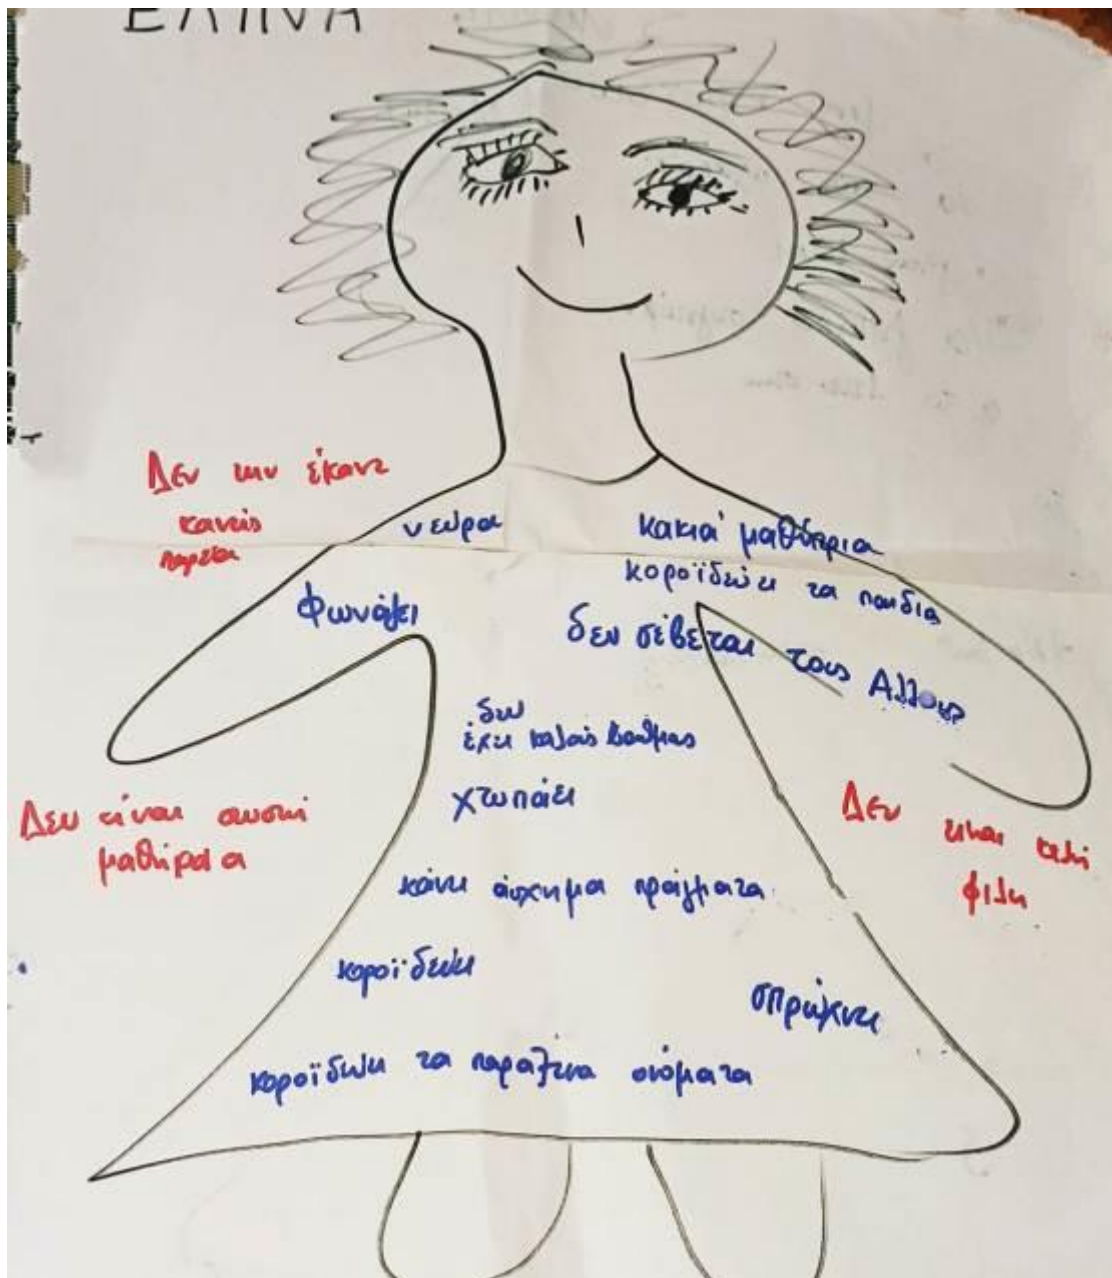 ΕΛΙΝΑ
Δεν την έκανε
κανείς
παρέα
νεύρα
κακιά μαθήτρια
κοροϊδεύει τα παιδια
φωνάζει
δεν σέβεται τους Αλλους
δεν
έχει καλούς βαθμους
χτυπάει
Δεν είναι σωστή
μαθήτρια
Δεν ειναι καλή
φιλη
κάνει άσχημα πράγματα
κοροϊδεύει
σπρώχνει
κοροϊδεύει τα παραξενα ονόματα